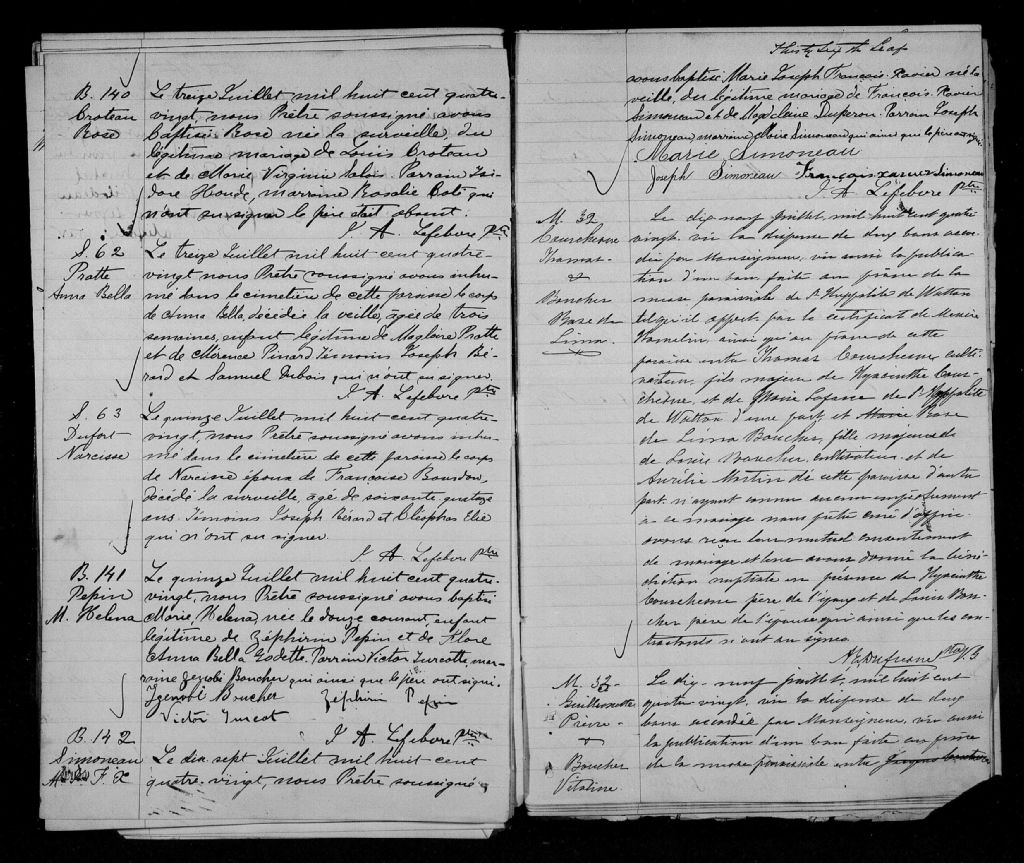 B. 140
Croteau
Rose
Le treize Juillet mil huit cent quatre-
vingt, nous Prêtre soussigné avons
baptisé Rose née la surveille, du
légitime mariage de Louis Croteau
et de Marie Virginie Parrain Isi-
dore Houde, marraine Rosalie Coté qui
n'ont su signer le père était absent.
J. A. Lefebvre Ptre
S. 62
Pratte
Anna Bella
Le treize Juillet mil huit cent quatre-
vingt nous Prêtre soussigné avons inhu-
mé dans le cimetière de cette paroisse le corps
de Anna Bella, décédée la veille, agée de trois
semaines, enfant légitime de Magloire Pratte
et de Pinard Témoins Joseph Bé-
rard et Samuel Dubois qui n'ont su signer.
J. A. Lefebvre Ptre
S. 63
Dufort
Narcisse
Le quinze Juillet mil huit cent quatre-
vingt, nous Prêtre soussigné avons inhu-
mé dans le cimetière de cette paroisse le corps
de Narcisse époux de Françoise Bourdon,
décédé la surveille, âgé de soixante quatorze
ans. Témoins Joseph Bérard et Cléophas Elie
qui n'ont su signer.
J. A. Lefebvre Ptre
B. 141
Pepin
M. Helena
Le quinze Juillet mil huit cent quatre-
vingt, nous Prêtre soussigné avons baptisé
Marie, Helena, née le douze courant, enfant
légitime de Zéphirin Pepin et de Flore
Anna Bella Godette. Parrain Victor Turcotte, mar-
raine Zénobi Boucher qui ainsi que le père ont signé.
Zenobi Boucher Zéphirin Pepin
Victor Turcot
J. A. Lefebvre Ptre
B. 142
Simoneau
F. X
Le dix sept Juillet mil huit cent
quatre-vingt, nous Prêtre soussigné
Thirty Sixth Leaf
avons baptisé Marie Joseph François-Xavier né la
veille, du légitime mariage de François-Xavier
Simoneau et de Magdelaine Duperon. Parrain Joseph
Simoneau, marraine Marie Simoneau qui ainsi que le père ont signé.
Marie Simoneau
Joseph Simoneau François xavier Simoneau
J. A. Lefebvre Ptre
M. 32
Courchesne
Thomas
&
Boucher
Rose de
Lima
Le dix-neuf juillet, mil huit cent quatre
vingt, vu la dispense de deux bans accor-
dée par Monseigneur, vu aussi la publica-
tion d'un ban faite au prône de la
messe paroissiale de St Hyppolite de Wotton
tel qu'il appert par le certificat de Messire
Hamelin, ainsi qu'au prône de cette
paroisse entre Thomas Courchesne culti-
vateur, fils majeur de Hyacinthe Cour-
chesne, et de Marie Lafasse de St Hyppolite
de Wotton d'une part, et Marie Rose
de Lima Boucher, fille majeure de
de Boucher, cultivateur, et de
Aurélie Martin de cette paroisse d'autre
part n'ayant connu aucun empêchement
à ce mariage nous prêtre curé d'office
avons reçu leur mutuel consentement
de mariage et leur avons donné la béné-
diction nuptiale en présence de Hyacinthe
Courchesne père de l'époux et de Louis Bou-
cher père de l'épouse qui ainsi que les con-
tractants n'ont su signer
N. E. Dufresne Ptre
M. 33
Guillemette
Pierre
&
Boucher
Vitaline
Le dix-neuf juillet, mil huit cent
quatre vingt, vu la dispense de deux
bans accordée par Monseigneur, vu aussi
la publication d'un ban faite au prône
de la messe paroissiale entre